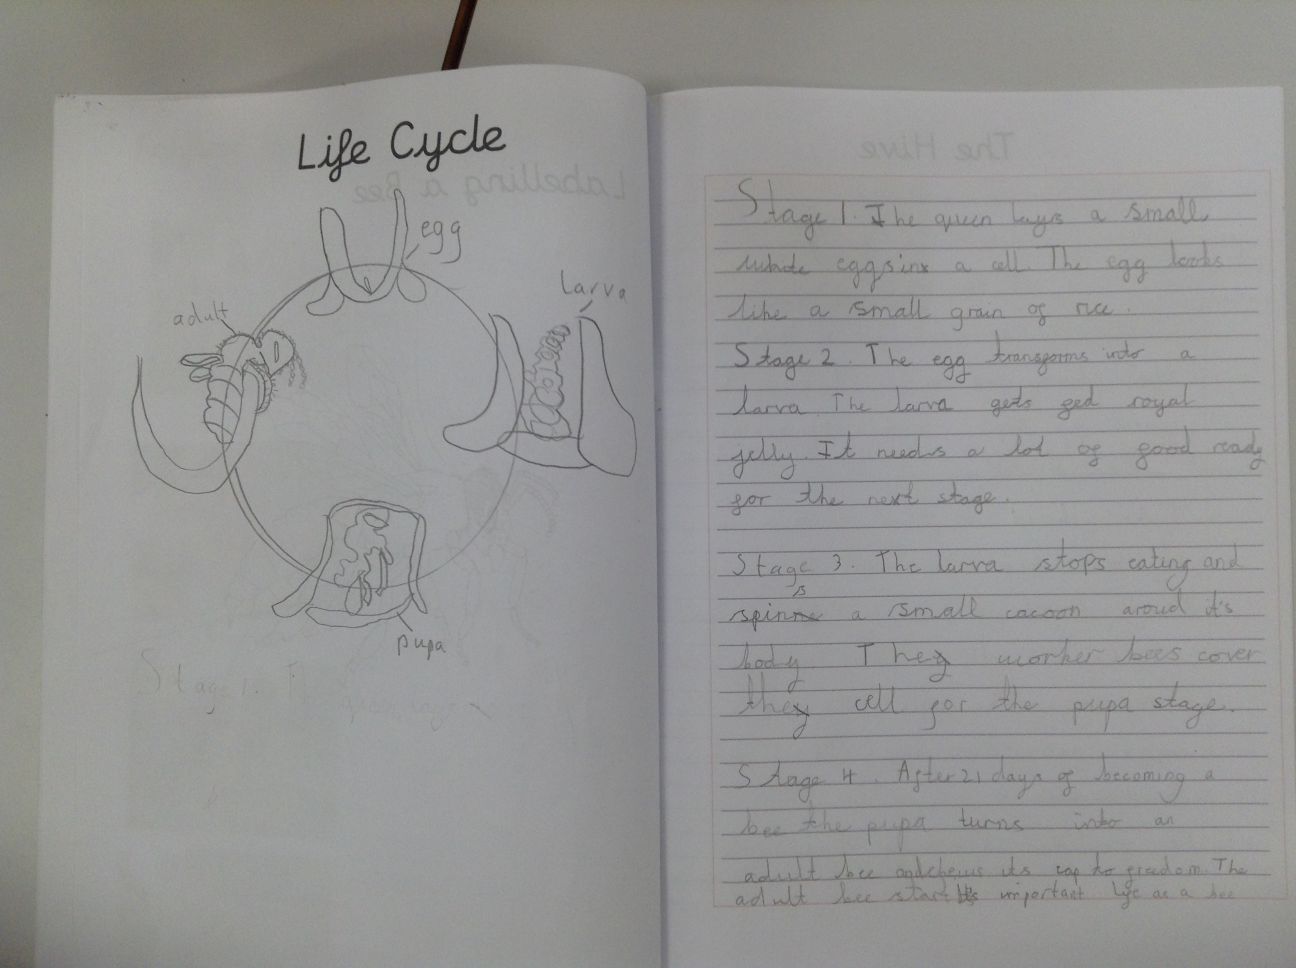 Life Cycle
egg
larva
adult
pupa
Stage 1. T
Stage 1. The queen lays a small
white eggsinx a cell. The egg looks
like a small grain of rice.
Stage 2. The egg transforms into a
larva. The larva gets fed royal
jelly. It needs a lot of good ready
for the next stage.
Stage 3. The larva stops eating and
spins a small cacoon aroud it's
body. They worker bees cover
they cell for the pupa stage.
Stage 4. After 21 days of becoming a
bee the pupa turns into an
adult bee and chews its cap to freedom. The
adult bee start it's important life as a bee
The Hive
Labelling a Bee